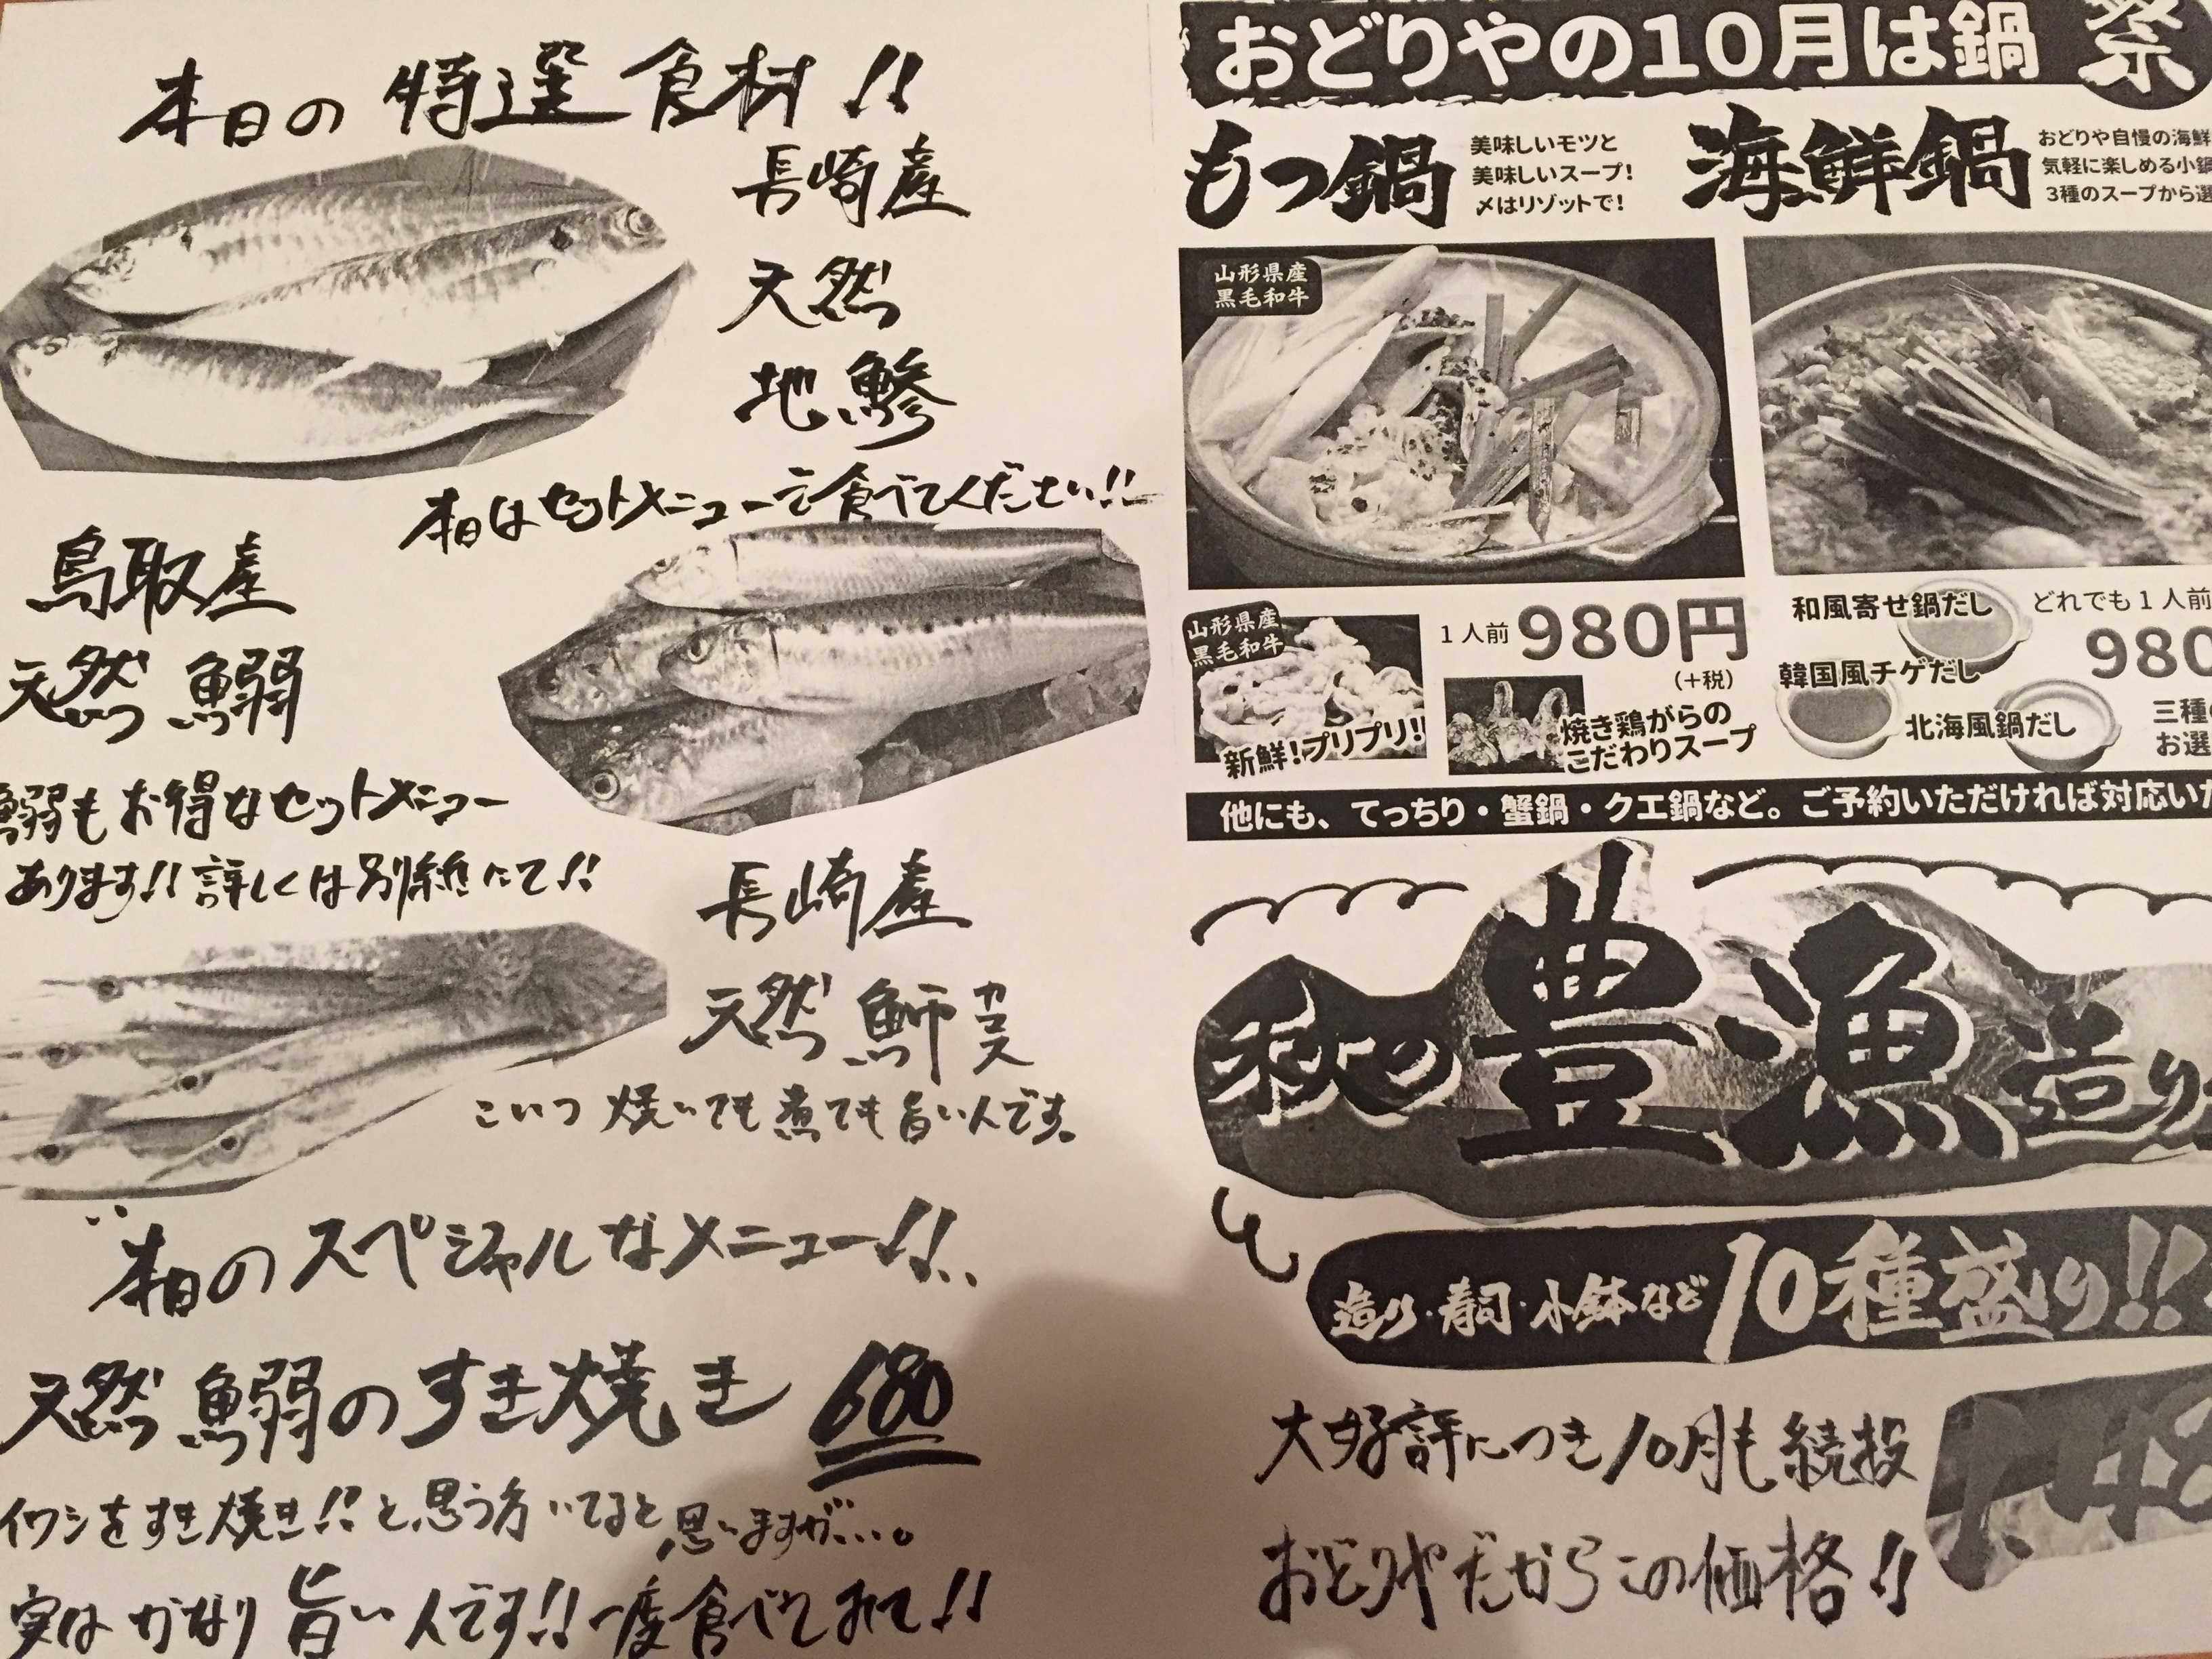 本日の特選食材!!
長崎産
天然
地鯵
本日はセットメニューで食べてください!!
鳥取産
天然 鰯
鰯もお得なセットメニュー
あります!! 詳しくは別紙にて!!
長崎産
天然 魳 カマス
こいつ 焼いても 煮ても 旨い人です。
本日のスペシャルなメニュー!!
天然 鰯のすき焼き 680
イワシをすき焼き!? と思う方いてると思いますが…。
実はかなり旨い人です!! 一度食べてみて!!
おどりやの10月は鍋 祭
もつ鍋
美味しいモツと
美味しいスープ!
〆はリゾットで!
山形県産
黒毛和牛
山形県産
黒毛和牛
新鮮!プリプリ!!
1人前 980円
(+税)
焼き鶏がらの
こだわりスープ
海鮮鍋
おどりや自慢の海鮮
気軽に楽しめる小鍋
3種のスープから選
和風寄せ鍋だし
韓国風チゲだし
北海風鍋だし
どれでも1人前
980
三種
お選
他にも、てっちり・蟹鍋・クエ鍋など。ご予約いただければ対応いた
秋の豊漁造り
造り・寿司・小鉢など10種盛り!!
大好評につき10月も続投
おどりやだからこの価格!!
1,48